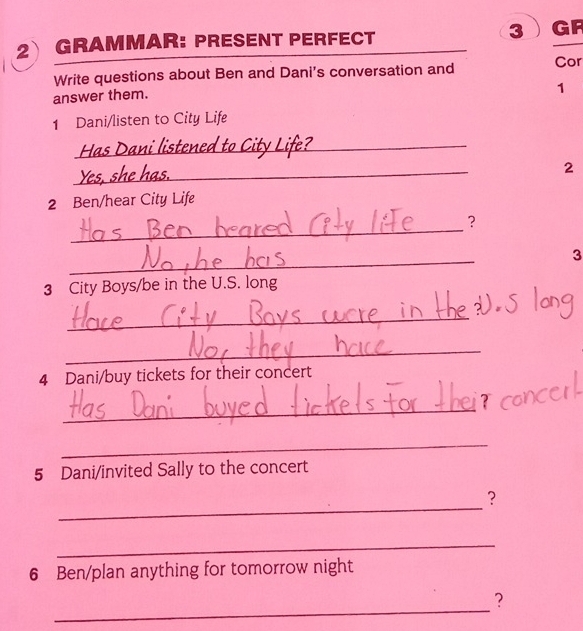 2 GRAMMAR: PRESENT PERFECT
Write questions about Ben and Dani's conversation and
answer them.
1 Dani/listen to City Life
Has Dani listened to City Life?
Yes, she has.
2 Ben/hear City Life
Has Ben heared City life ?
No, he has
3 City Boys/be in the U.S. long
Hace City Boys were in the U.S long ?
No, they hace
4 Dani/buy tickets for their concert
Has Dani buyed tickets for their concert ?
5 Dani/invited Sally to the concert
?
6 Ben/plan anything for tomorrow night
?
3 GR
Cor
1
2
3